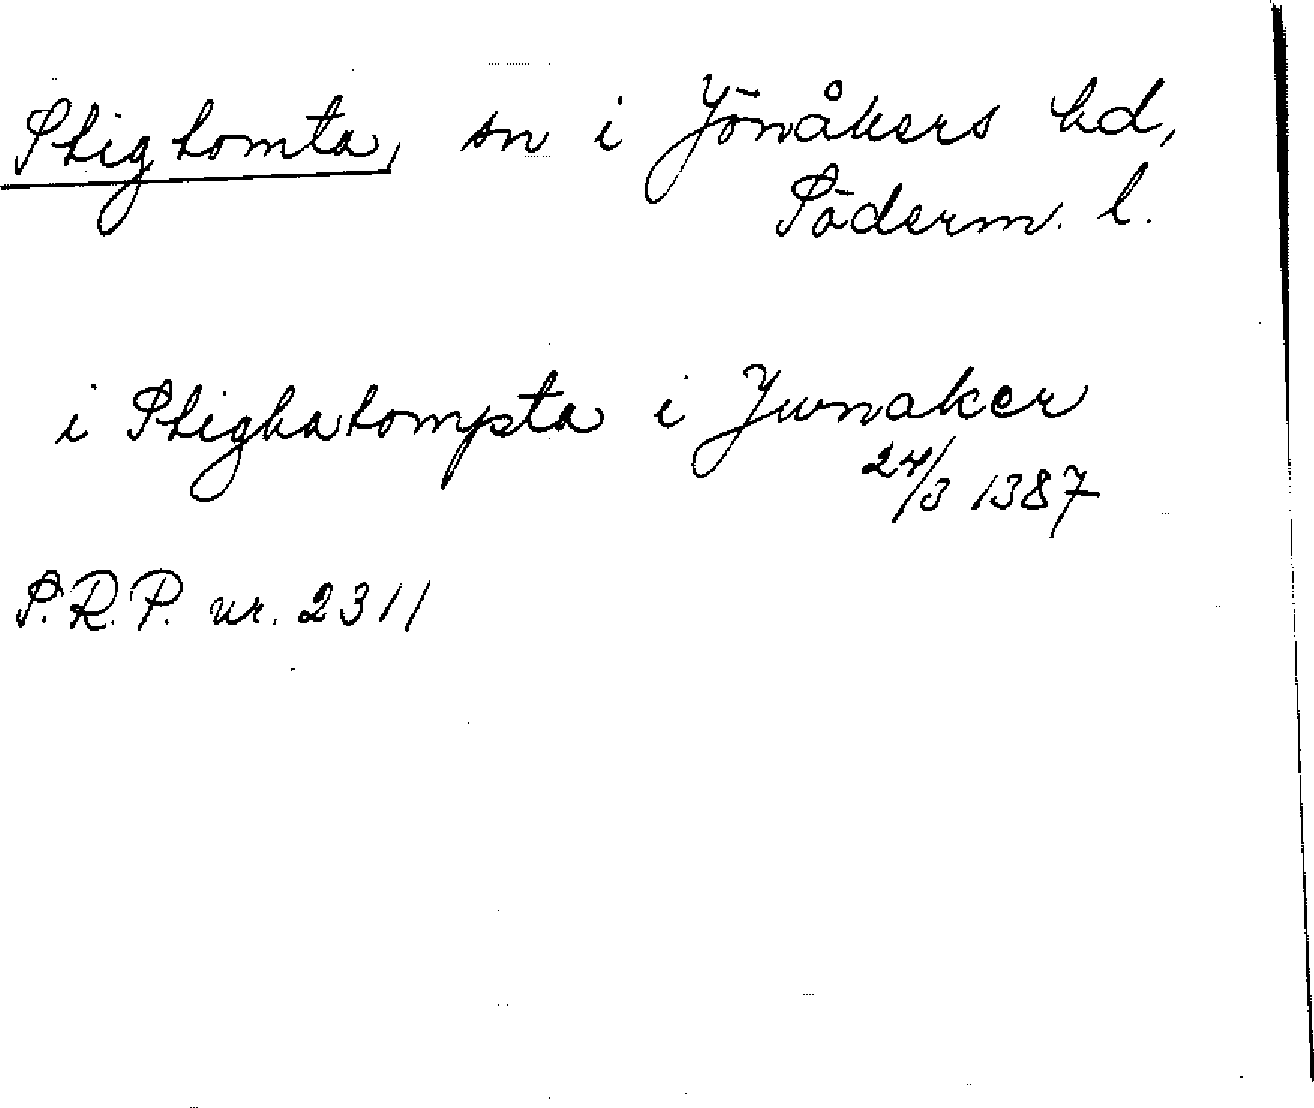 Stigtomta, sn i Jönåkers hd,
Söderm. l.
i Stighatompta i Junaker
24/3 1387
S.R.P. nr. 2311